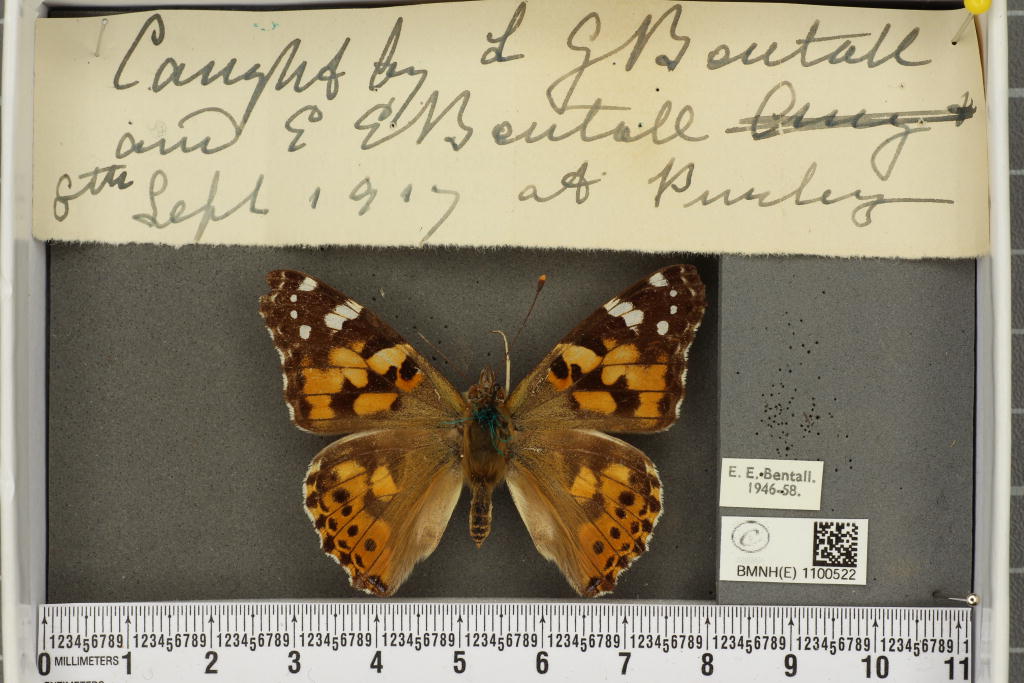 Caught by L G. Bentall
and E E Bentall
8th Sept 1917 at Purley
E. E. Bentall.
1946-58.
C
BMNH(E) 1100522
123456789 123456789 123456789 123456789 123456789 123456789 123456789 123456789 123456789 123456789 123456789
0 MILLIMETERS 1 2 3 4 5 6 7 8 9 10 11